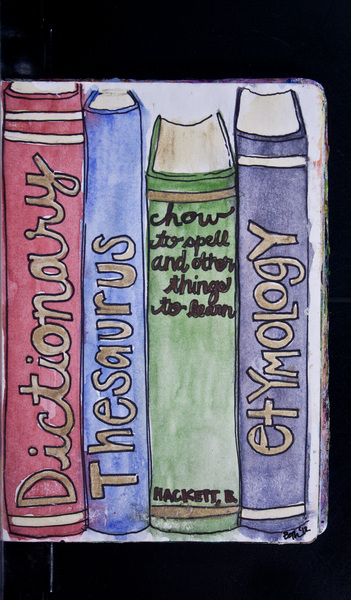 Dictionary
Thesaurus
chow
to spell
and other
things
to learn
HACKETT, B.
etYmology